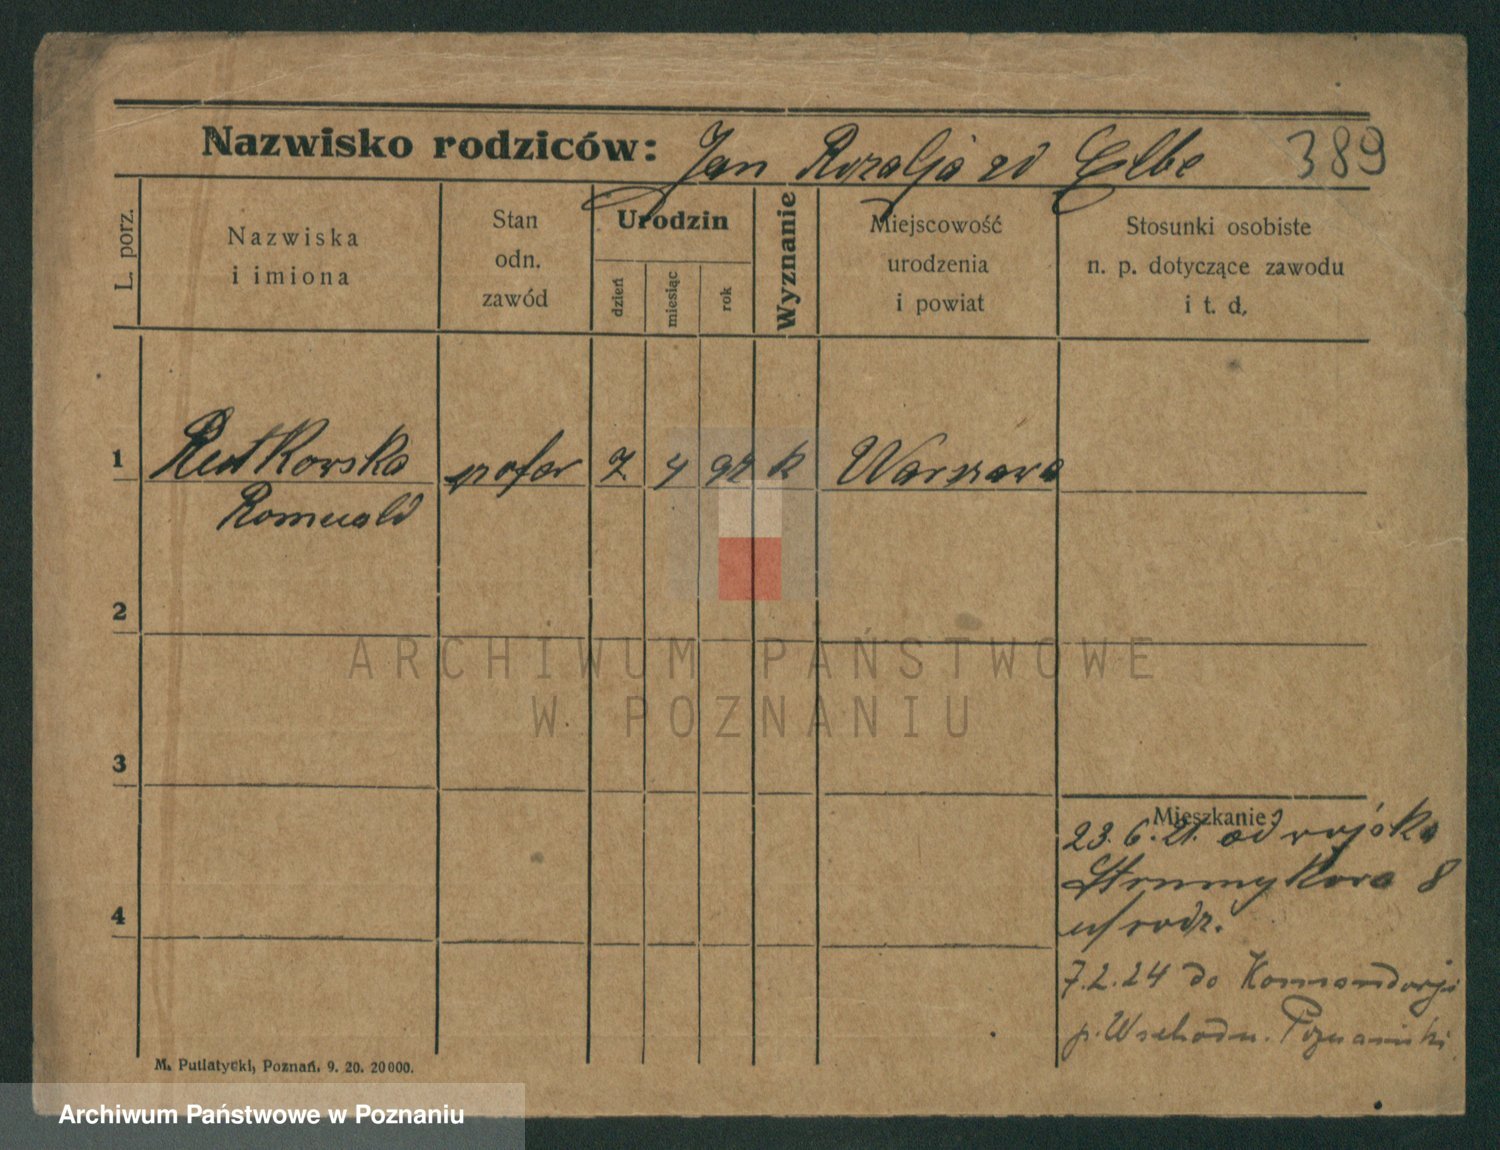 Nazwisko rodziców: Jan Rozalja zd Elbe 389
L. porz.
Nazwiska i imiona
Stan odn. zawód
Urodzin
dzień
miesiąc
rok
Wyznanie
Miejscowość urodzenia i powiat
Stosunki osobiste n. p. dotyczące zawodu i t. d.
1 Rutkowska szofer 7 4 97 k Warszawa
Romuald
2
3
4
Mieszkanie:
23.6.21. od wojska
Strumykowa 8
u/rodz.
7.2.24 do Komandorji
p. Wschodn. Poznański
M. Putiatycki, Poznań. 9. 20. 20000.
ARCHIWUM PAŃSTWOWE
W POZNANIU
Archiwum Państwowe w Poznaniu